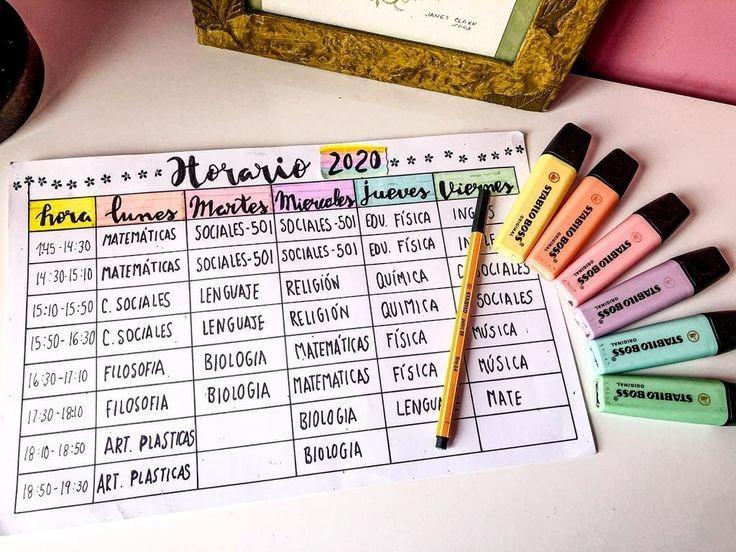 JANET CLARK
Horario 2020
hora lunes Martes Miercoles jueves Viernes
145-14:30 MATEMÁTICAS SOCIALES-501 SOCIALES-501 EDU. FÍSICA
14:30-15:10 MATEMÁTICAS SOCIALES-501 SOCIALES-501 EDU. FÍSICA
15:10-15:50 C. SOCIALES LENGUAJE RELIGIÓN QUÍMICA C SOCIALES
15:50-16:30 C. SOCIALES LENGUAJE RELIGIÓN QUIMICA SOCIALES
16:30-17:10 FILOSOFIA BIOLOGIA MATEMÁTICAS FÍSICA MÚSICA
17:30-18:10 FILOSOFIA BIOLOGIA MATEMATICAS FÍSICA MÚSICA
18:10-18:50 ART. PLASTICAS BIOLOGIA LENGUA MATE
18:50-19:30 ART. PLASTICAS BIOLOGIA
STABILO BOSS
ORIGINAL
STABILO BOSS
ORIGINAL
STABILO BOSS
ORIGINAL
STABILO BOSS
ORIGINAL
STABILO BOSS
ORIGINAL
STABILO BOSS
ORIGINAL